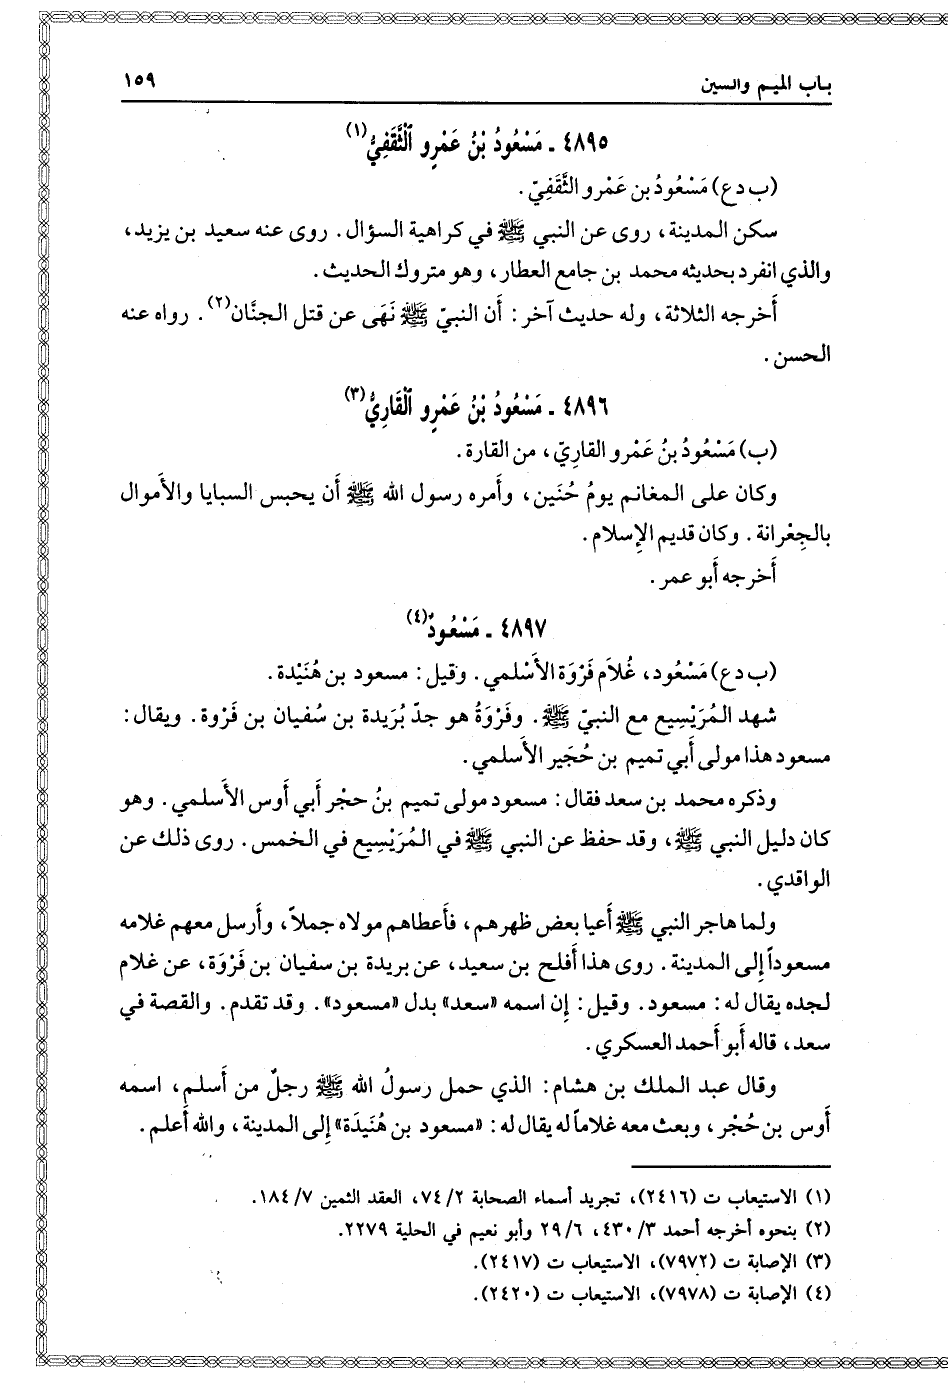 باب الميم والسين ١٥٩
٤٨٩٥ - مَسْعُودُ بْنُ عَمْرِو ٱلْثَّقَفِيُّ(١)
(ب د ع) مَسْعُودُ بن عَمْرو الثَّقَفِيّ.
سكن المدينة، روى عن النبي ﷺ في كراهية السؤال. روى عنه سعيد بن يزيد،
والذي انفرد بحديثه محمد بن جامع العطار، وهو متروك الحديث.
أَخرجه الثلاثة، وله حديث آخر: أن النبيّ ﷺ نَهَى عن قتل الجنَّان(٢). رواه عنه
الحسن.
٤٨٩٦ - مَسْعُودُ بْنُ عَمْرِو ٱلْقَارِيُّ(٣)
(ب) مَسْعُودُ بنُ عَمْرو القارِيّ، من القارة.
وكان على المغانم يومُ حُنَين، وأَمره رسول الله ﷺ أَن يحبس السبايا والأموال
بالجِعْرانة. وكان قديم الإِسلام.
أَخرجه أَبو عمر.
٤٨٩٧ - مَسْعُودٌ(٤)
(ب د ع) مَسْعُود، غُلاَم فَرْوَة الأَسْلمي. وقيل: مسعود بن هُنَيْدة.
شهد المُرَيْسِيع مع النبيّ ﷺ. وفَرْوَةُ هو جدّ بُرَيدة بن سُفيان بن فَرْوة. ويقال:
مسعود هذا مولى أَبي تميم بن حُجَير الأَسلمي.
وذكره محمد بن سعد فقال: مسعود مولى تميم بنُ حجْر أَبي أَوس الأَسلمي. وهو
كان دليل النبي ﷺ، وقد حفظ عن النبي ﷺ في المُرَيْسِيع في الخمس. روى ذلك عن
الواقدي.
ولما هاجر النبي ﷺ أَعيا بعض ظهرهم، فأَعطاهم مولاه جملاً، وأَرسل معهم غلامه
مسعوداً إِلى المدينة. روى هذا أَفلح بن سعيد، عن بريدة بن سفيان بن فَرْوَة، عن غلام
لجده يقال له: مسعود. وقيل: إِن اسمه «سعد» بدل «مسعود». وقد تقدم. والقصة في
سعد، قاله أَبو أَحمد العسكري.
وقال عبد الملك بن هشام: الذي حمل رسولُ الله ﷺ رجلٌ من أَسلم، اسمه
أَوس بن حُجْر، وبعث معه غلاماً له يقال له: «مسعود بن هُنَيدَة» إِلى المدينة، والله أَعلم.
(١) الاستيعاب ت (٢٤١٦)، تجريد أسماء الصحابة ٧٤/٢، العقد الثمين ١٨٤/٧.
(٢) بنحوه أخرجه أحمد ٤٣٠/٣، ٢٩/٦ وأبو نعيم في الحلية ٢٢٧٩.
(٣) الإصابة ت (٧٩٧٢)، الاستيعاب ت (٢٤١٧).
(٤) الإصابة ت (٧٩٧٨)، الاستيعاب ت (٢٤٢٠).